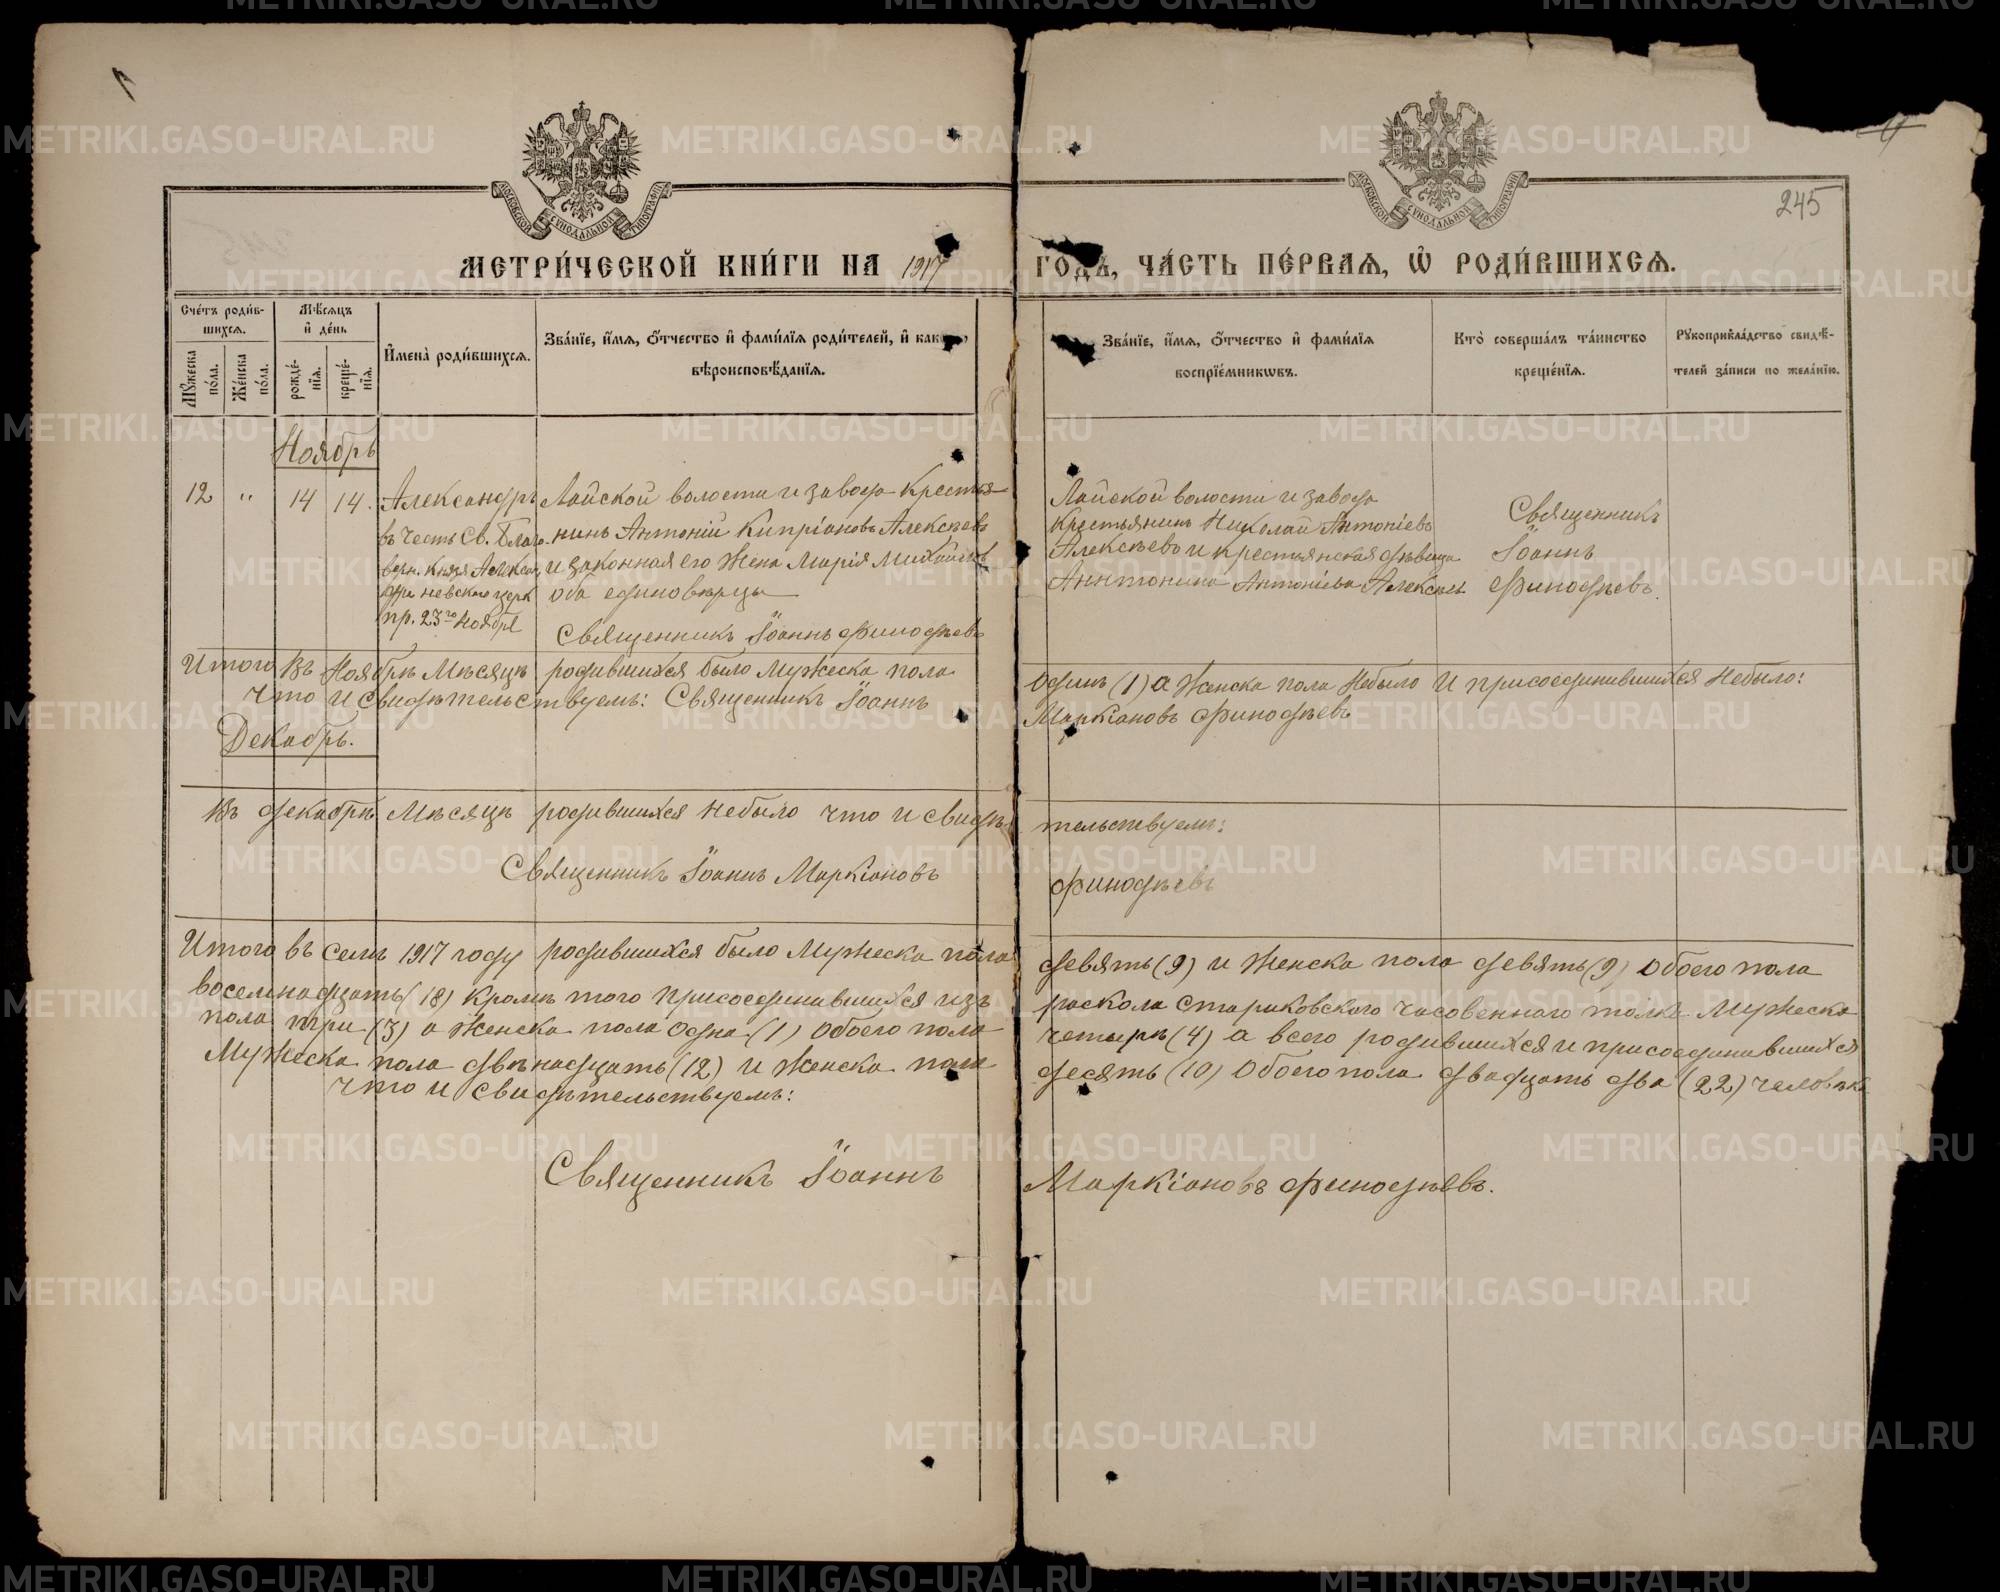 245
МЕТРИ́ЧЕСКОЙ КНИ́ГИ НА 1917 ГОДЪ, ЧА́СТЬ ПЕ́РВАѦ, Ѡ҆ РОДИ́ВШИХСѦ.
Сче́тъ роди́в-
шихсѧ.
Мꙋ́жеска по́ла.
Же́нска по́ла.
Мѣ́сѧцъ и҆ де́нь
рожде́-
нїѧ.
креще́-
нїѧ.
И҆мена̀ роди́вшихсѧ.
Зва́нїе, и҆́мѧ, ѻ҆́тчество и҆ фами́лїѧ роди́телей, и҆
вѣроисповѣ́данїѧ.
Зва́нїе, и҆́мѧ, ѻ҆́тчество и҆ фами́лїѧ
воспрїе́мникѡвъ.
Кто̀ соверша́лъ та́инство
креще́нїѧ.
Рꙋкоприкла́дство свидѣ́-
телей за́писи по жела́нїю.
Ноябрь
12 „ 14 14.
Александръ
въ честь Св. Благо-
верн. Князя Алексан.
невскаго
пр. 23го Ноября
Лайской волости и завода крестья-
нинъ Антоній Кипріановъ Алексѣевъ
и законная его жена Марія Михайлов
оба единовѣрцы
Священникъ Іоаннъ Финодѣевъ
Лайской волости и завода
Крестьянинъ Николай Антоніевъ
Алексѣевъ и крестьянская дѣвица
Антонина Антоніева Алексѣев
Священникъ
Іоаннъ
Финодѣевъ.
Итого въ Ноябрѣ Мѣсяцѣ родившихся было Мужеска пола одинъ (1) а Женска пола небыло и присоединившихся небыло:
что и свидѣтельствуемъ: Священникъ Іоаннъ Маркіановъ Финодѣевъ
Декабрь.
Въ декабрѣ Мѣсяцѣ родившихся небыло что и свидѣ тельствуемъ:
Священникъ Іоаннъ Маркіановъ Финодѣевъ
Итого въ семъ 1917 году родившихся было Мужеска пола девять (9) и Женска пола девять (9) обоего пола
восемнадцать (18) кромѣ того присоединившихся изъ раскола Стариковскаго часовеннаго толка Мужеска
пола три (3) а женска пола одна (1) обоего пола четырѣ (4) а всего родившихся и присоединившихся
Мужеска пола двѣнадцать (12) и Женска пола десять (10) обоего пола двадцать два (22) человѣка
что и свидѣтельствуемъ:
Священникъ Іоаннъ Маркіановъ Финодѣевъ.